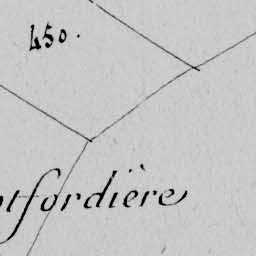 450.
tfordière